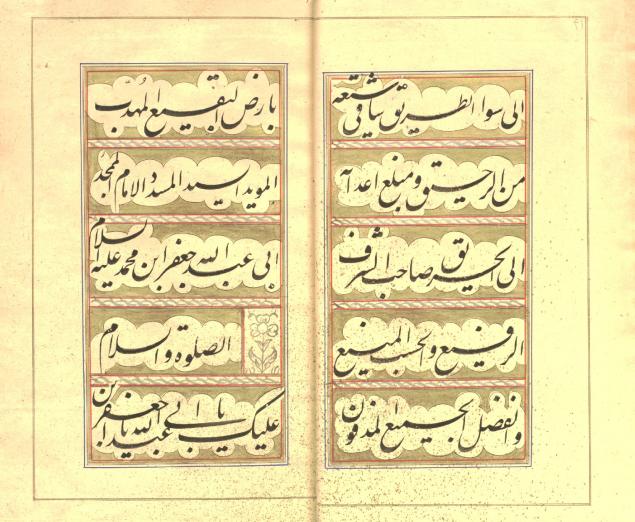 الی سوا الطریق ساقی شیعته
من الرحیق و مبلغ اعدائه
الی الحریق صاحب الشرف
الرفیع والحسب المنیع
والفضل الجمیع المدفون
بارض البقیع المهذب
الموید السید المسدد الامام الممجد
ابی عبد الله جعفر ابن محمد علیه السلام
الصلوة والسلام
علیک یا ابا عبد الله یا جعفر بن